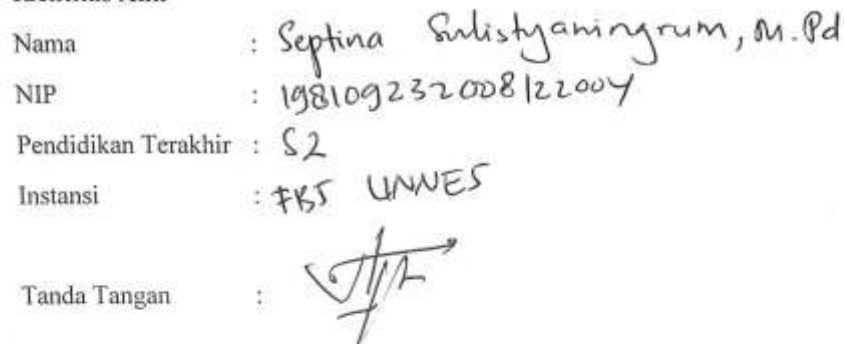 Nama : Septina Sulistyaningrum, M.Pd
NIP : 198109232008122004
Pendidikan Terakhir : S2
Instansi : FBS UNNES
Tanda Tangan :